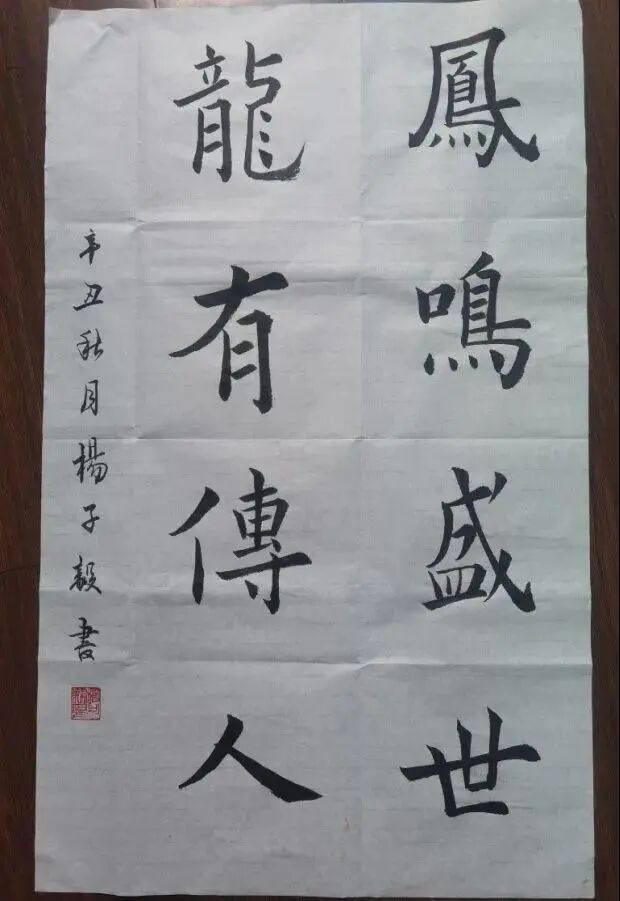 鳳鳴盛世
龍有傳人
辛丑秋月楊子毅書